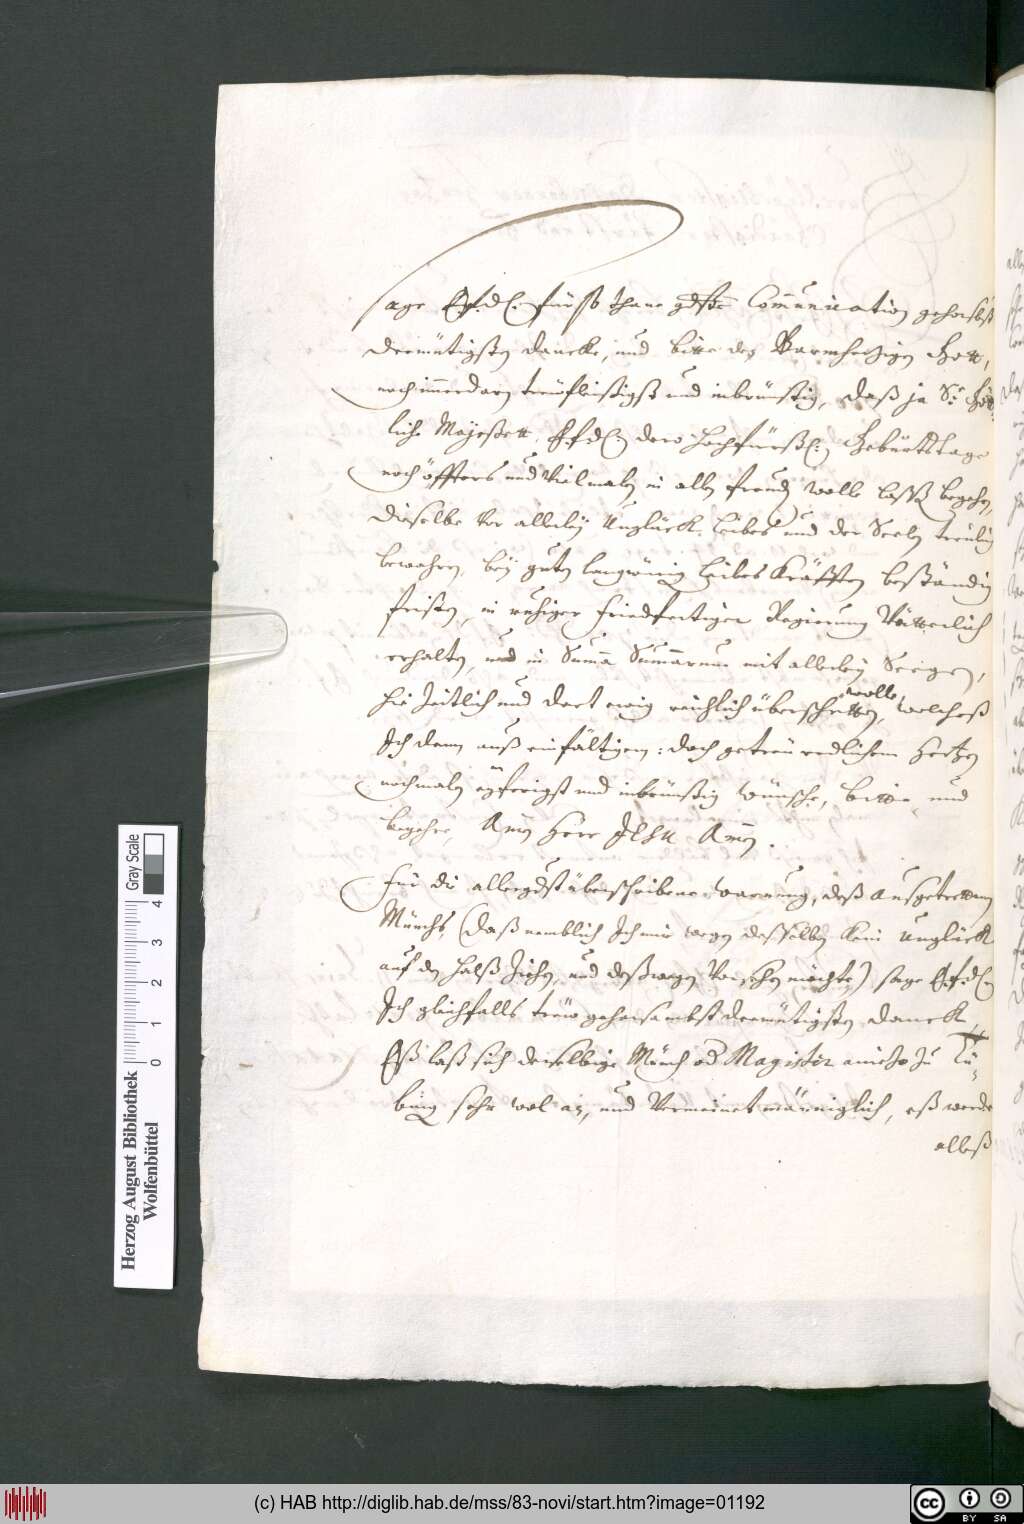 sage E. f. g. für so thane gdste Communication gehorsbst
demütigsten dancke, und bitte den Barmhertzigen Gott,
noch immerdar treufleißigst und inbrünstig, daß ja Se Gött-
liche Mayestett, E. f. g. dero hochfürstl: Geburtstage
noch öffters und Vielmaln in allen freuden wolle laßen begehen,
dieselbe Vor allerley Unglück Leibes und der Seelen treulich
bewahren, bey guten langwirig Leibes Kräfften beständig
fristen, in ruhiger friedfertiger Regierung Vätterlich
erhalten, und in Summa Summarum mit allerley Seegen,
hie Zeitlich und dort ewig reichlich überschütten wolle, welches
Ich dann auß einfältigem: doch getreu redlichem Hertzen
nochmaln eyferigst und inbrünstig wünsche, bitte und
begehre, Amen Herr JESU Amen.
für die allergdst überschriebene warnung, deß Ausgetrettenen
Münchs, (daß nemblich Ich mir wegen desselben kein Unglück
auf den Halß Ziehen, und deßwegen Vorsehen möchte) sage E. f. g.
Ich gleichfalls treu gehorsambst demütigsten danck
Eß laß sich derselbige Münch od Magister anietzo zu Tü-
bing sehr wol an, und Vermeinet männiglich, eß werde
alleß
Herzog August Bibliothek
Wolfenbüttel
0 1 2 3 4
Gray Scale
(c) HAB http://diglib.hab.de/mss/83-novi/start.htm?image=01192
cc BY SA